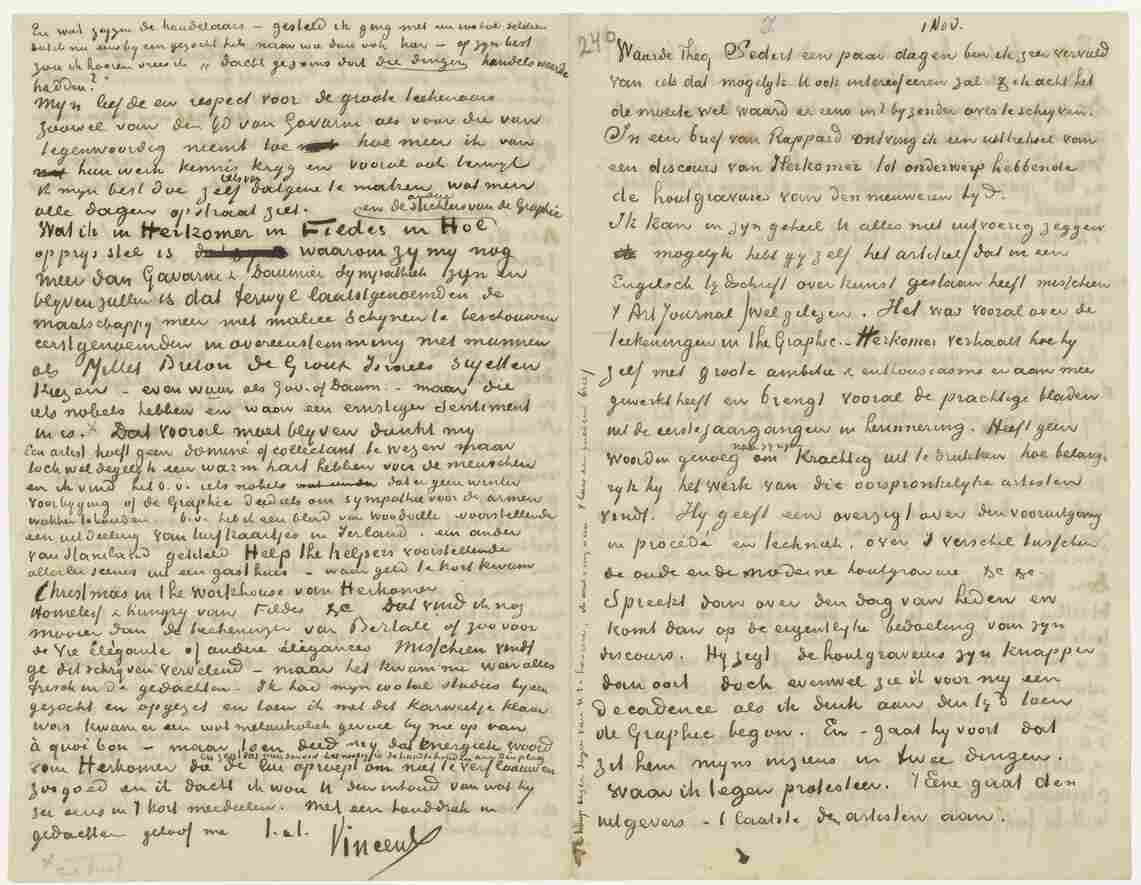 En wat zeggen de handelaars – gesteld ik ging met een wotal teekeninge
hadden?
Myn liefde en respect voor de groote teekenaars
zoowel van den tyd van Gavarni als voor die van
tegenwoordig neemt toe hoe meer ik van
hun werk kennis kryg en vooral ook terwyl
ik myn best doe zelf iets van datgene te maken wat men
alle dagen op straat ziet.
en de stichters van de Graphic
Wat ik in Herkomer in Fildes in Holl
op prys stel is waarom zy my nog
meer dan Gavarni & Daumier sympathiek zyn en
blyven zullen is dat terwyl laatstgenoemden de
maatschappy meer met malice schynen te beschouwen
eerstgenoemden in overeenstemming met mannen
als Millet Breton de Groux Israels sujetten
kiezen – even waar als Gav. of Daum. – maar die
iets nobels hebben en waar een ernstiger sentiment
in is. x Dat vooral moet blyven dunkt my
Een artist hoeft geen dominé of collectant te wezen maar
toch wel degelyk een warm hart hebben voor de menschen
en ik vind het b.v. iets nobels dat er geen winter
voorbyging of de Graphic deed iets om sympathie voor de armen
wakker te houden. b.v. heb ik een blad van Woodville voorstellende
een uitdeeling van turfkaartjes in Ierland. een ander
van Staniland getiteld Help the helpers voorstellende
allerlei scenes uit een gasthuis – waar geld te kort kwam
Christmas in the Workhouse van Herkomer
Homeless & hungry van Fildes &c Dat vind ik nog
mooier dan de teekeningen van Bertall of zoo voor
de Vie élégante of andere élegances Misschien vindt
ge dit schryven vervelend – maar het kwam me weer alles
frisch in de gedachten – Ik had myn wotal studies byeen
gezocht en opgezet en toen ik met dat karweitje klaar
was kwam er een wat melankoliek gevoel by me op van
à quoi bon – maar toen deed my dat energieke woord
van Herkomer die de lui oproept om niet te verflaauwen
zoo goed en ik dacht ik wou U den inhoud van wat hy
zei eens in 't kort meedeelen. Met een handdruk in
gedachten geloof me t. à t.
Vincent
240
1 Nov.
Waarde Theo, Sedert een paar dagen ben ik zeer vervuld
van iets dat mogelyk U ook interesseeren zal & ik acht het
de moeite wel waard er U eens in 't byzonder over te schryven.
In een brief van Rappard ontving ik een uittreksel van
een discours van Herkomer tot onderwerp hebbende
de houtgravures van den nieuweren tyd.
Ik kan in zyn geheel U alles niet uitvoerig zeggen
mogelyk hebt gy zelf het artikel/dat in een
Engelsch tydschrift over kunst gestaan heeft misschien
't Art Journal/wel gelezen. Het was vooral over de
teekeningen in the Graphic. – Herkomer verhaalt hoe hy
zelf met groote ambitie & enthousiasme er aan mee
gewerkt heeft en brengt vooral de prachtige bladen
uit de eerste jaargangen in herinnering. Heeft geen
woorden genoeg om krachtig uit te drukken hoe belang-
ryk hy het werk van die oorspronkelyke artisten
vindt. Hy geeft een overzigt over den vooruitgang
in procédé en techniek, over 't verschil tusschen
de oude en de moderne houtgravure &c &c.
Spreekt dan over den dag van heden en
komt dan op de eigentlyke bedoeling van zyn
discours. Hy zegt de houtgraveurs zyn knapper
dan ooit doch evenwel zie ik voor my een
decadence als ik denk aan den tyd toen
de Graphic begon. En – gaat hy voort dat
zit hem myns inziens in twee dingen.
Waar ik tegen protesteer. 't Eene gaat den
uitgevers – 't laatste de artisten aan.